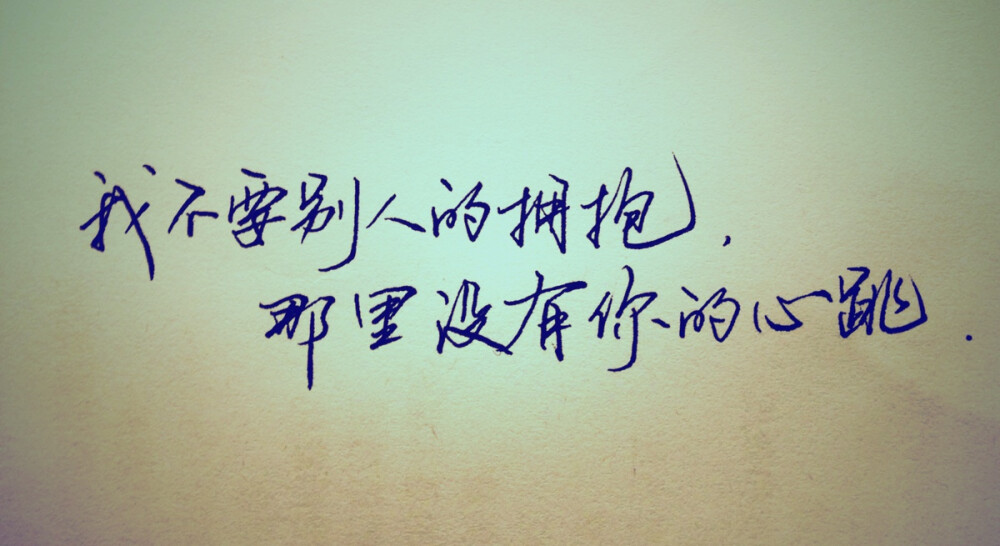 我不要别人的拥抱,
那里没有你的心跳.